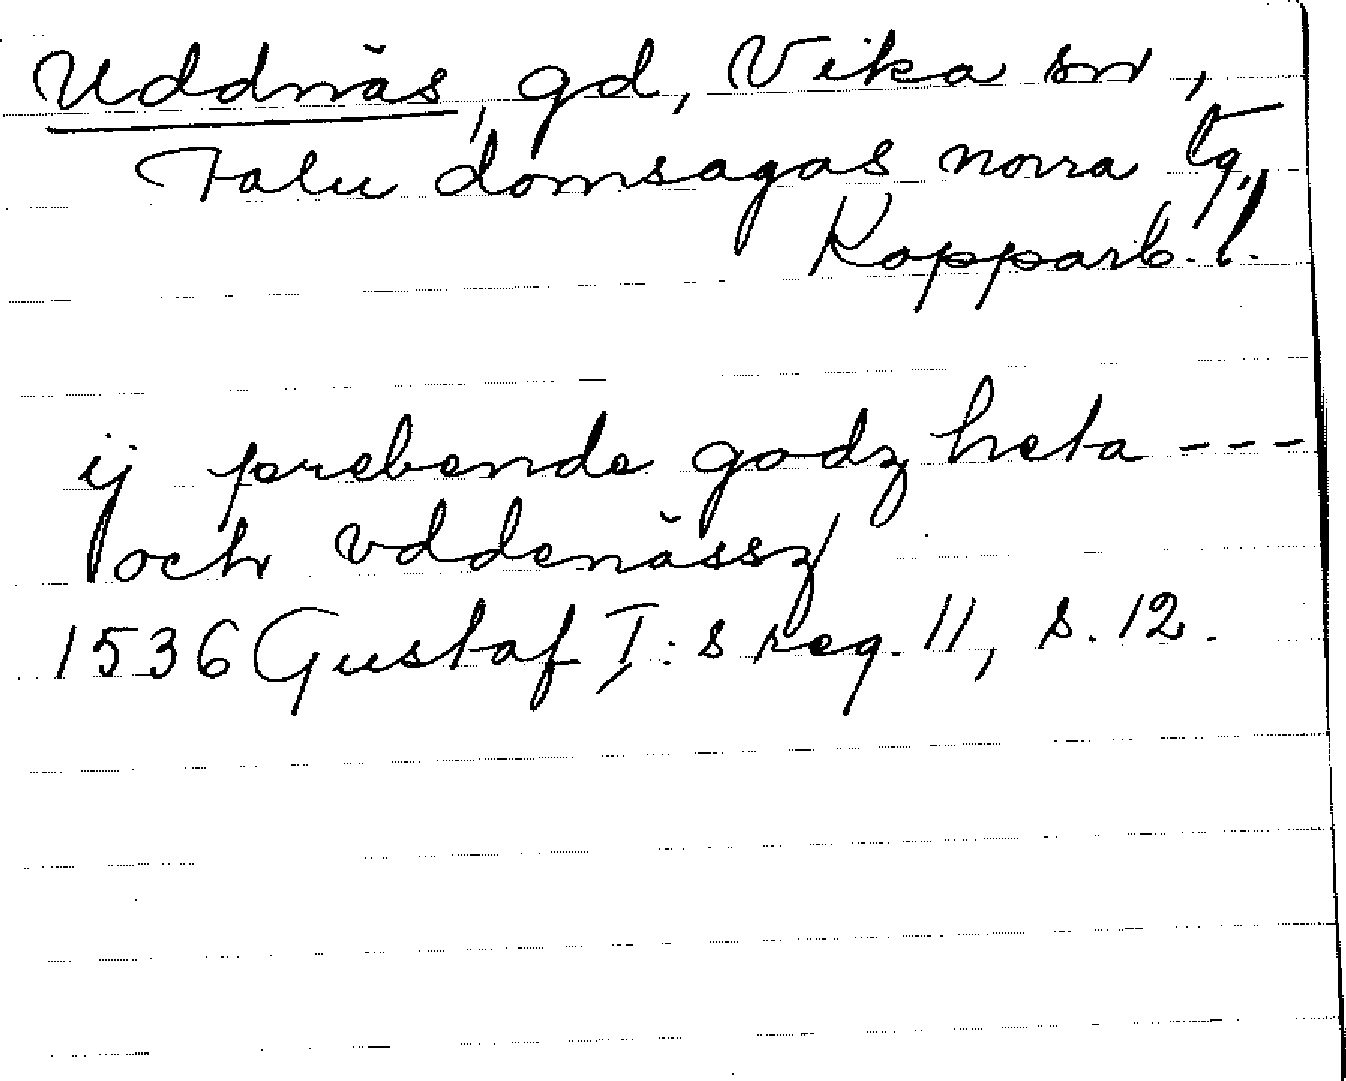 Uddnäs, gd, Vika sn,
Falu domsagas norra tg,
Kopparb. l.
ij prebende godz heta ---
och vddenässz
1536 Gustaf I:s reg. 11, s. 12.